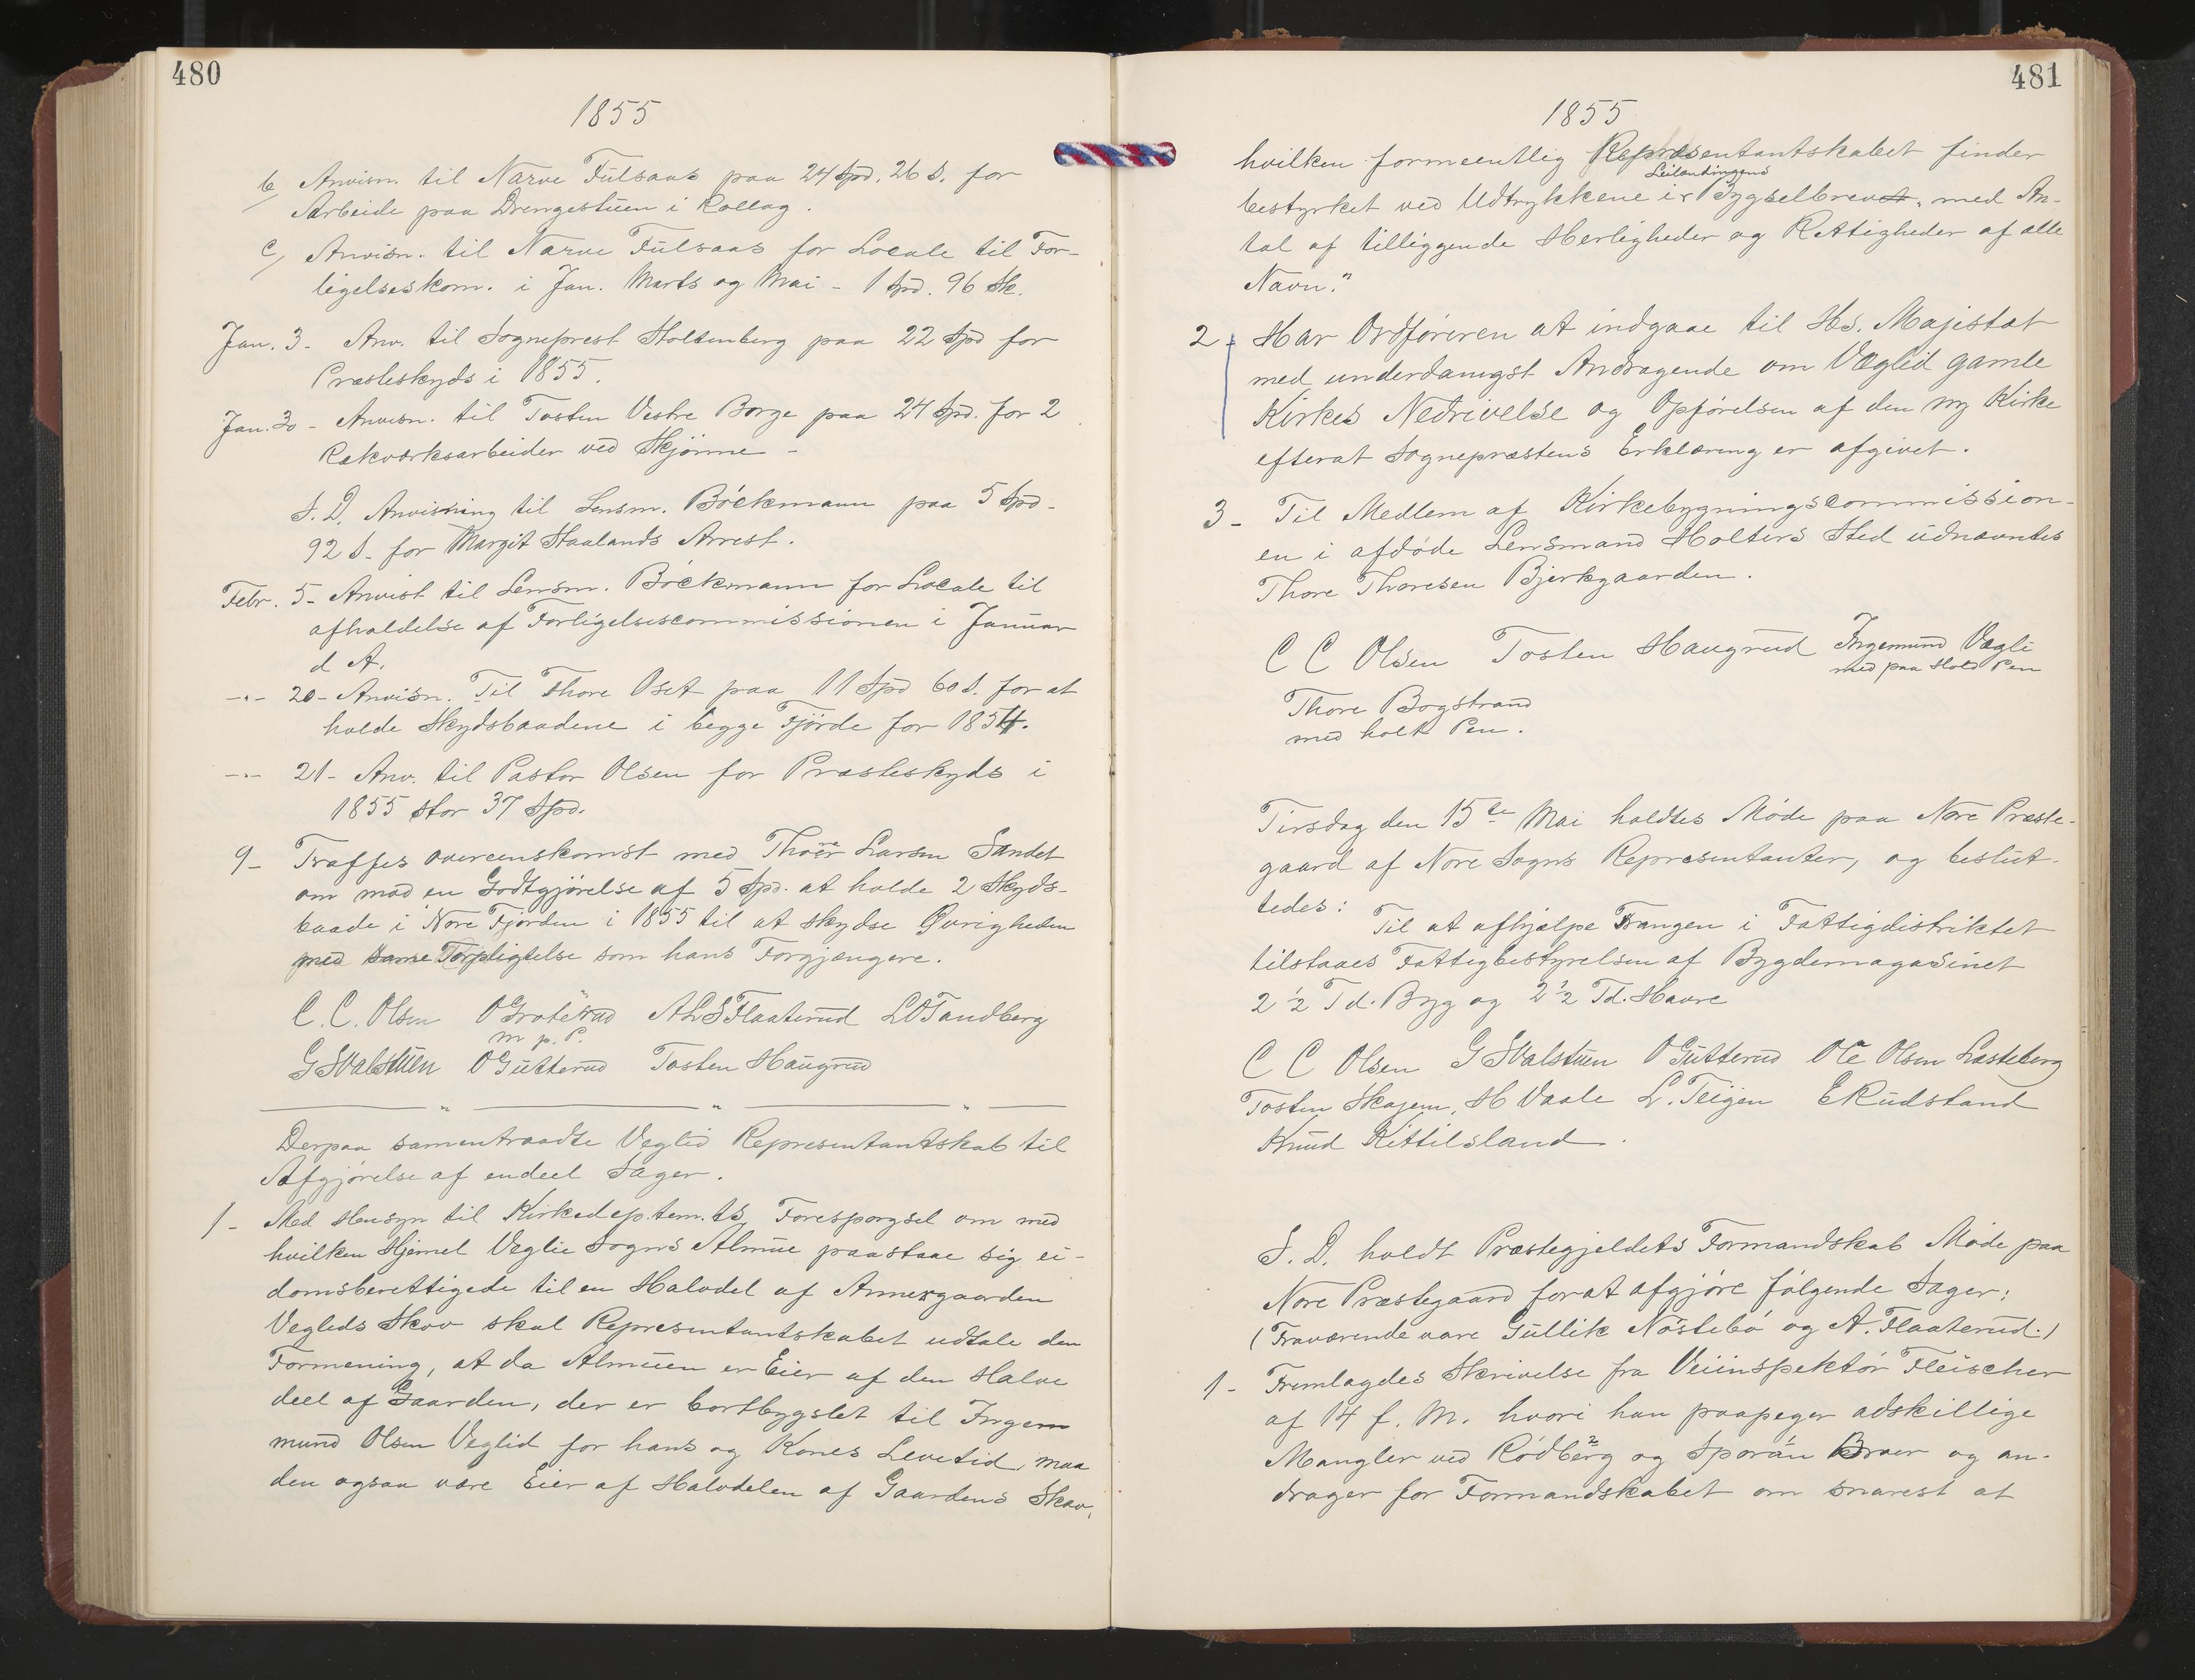 480
1855
b/ Anvisn. til Narve Fulsaas paa 24 Spd. 26 S. for
Arbeide paa Drengestuen i Rollag.
c/ Anvisn. til Narve Fulsaas for Locale til For-
ligelseskom. i Jan. Marts og Mai - 1 Spd. 96 Sk.
Jan. 3 - Anv. til Sogneprest Stoltenberg paa 22 Spd for
Præsteskyds i 1855.
Jan. 30 - Anvisn. til Tosten Vestre Borge paa 24 Spd. for 2
Rækværksarbeider ved Skjönne -
S. D. Anvisning til Lensm. Böckmann paa 5 Spd -
92 S. for Margit Staalands Arrest.
Febr. 5 - Anvist til Lensm. Böckmann for Locale til
afholdelse af Forligelsescommissionen i Januar
d A.
-"- 20 - Anvisn. Til Thore Oset paa 11 Spd 60 S. for at
holde Skydsbaadene i begge Fjörde for 1854.
-"- 21 - Anv. til Pastor Olsen for Præsteskyds i
1855 stor 37 Spd.
9 - Traffes overeenskomst med Thore Larsen Sandet
om mod en Godtgjörelse af 5 Spd. at holde 2 Skyds-
baade i Nore Fjorden i 1855 til at skydse Øvrigheden
med samme Forpligtelse som hans Forgjængere.
C. C. Olsen O Groterud A L S Flaaterud L O Tandberg
m p. P.
G S Valstuen O Gutterud Tosten Haugrud
Derpaa samentraadte Veglid Representantskab til
Afgjörelse af endeel Sager.
1 - Med Hensyn til Kirkedep.tem.ts Foresporgsel om med
hvilken Hjemel Veglie Sogns Almue paastaae sig ei-
domsberettigede til en Halvdel af Annexgaarden
Veglids Skov skal Representantskabet udtale den
Formening, at da Almuen er Eier af den Halve
deel af Gaarden, der er bortbygslet til Ingem
mund Olsen Veglid for hans og Kones Levetid, maa
den ogsaa være Eier af Halvdelen af Gaardens Skov,
481
1855
hvilken formeentlig Repræsentantskabet finder
Leilændingens
bestyrket ved Udtrykkene i Bygselbrevet, med An-
tal af tilliggende Herligheder og Rettigheder af alle
Navn."
2 - Har Ordföreren at indgaae til Hs. Majestæt
med underdanigst Andragende om Væglid gamle
Kirkes Nedrivelse og Opförelsen af den ny Kirke
efterat Sognepræstens Erklæring er afgivet.
3 - Til Medlem af Kirkebygningscommission-
en i afdöde Lensmand Holters Sted udnævntes
Thore Thoresen Bjerkgaarden.
C C Olsen Tosten Haugrud Ingemund Vægli
med paa Hold Pen
Thore Bogstrand
med holt Pen.
Tirsdag den 15de Mai holdtes Möde paa Nore Præste-
gaard af Nore Sogns Representanter, og beslut-
tedes:
Til at afhjælpe Trangen i Fattigdistriktet
tilstaaes Fattigbestyrelsen af Bygdemagasinet
2 1/2 Td. Byg og 2 1/2 Td. Havre
C C Olsen G S Valstuen O Gutterud Ole Olsen Læsteberg
Tosten Skajem, H Vaale L. Teigen E Rudstand
Knud Kittilsland.
S. D. holdt Præstegjeldets Formandskab Möde paa
Nore Præstegaard forat afgjöre fölgende Sager:
(Fraværende vare Gullik Nöstebö og A. Flaaterud.)
1 - Fremlagdes Skrivelse fra Veiinspektör Fleischer
af 14 f. M. hvori han paapeger adskillige
Mangler ved Rödberg og Sporan Broer og an-
drager for Formandskabet om snarest at